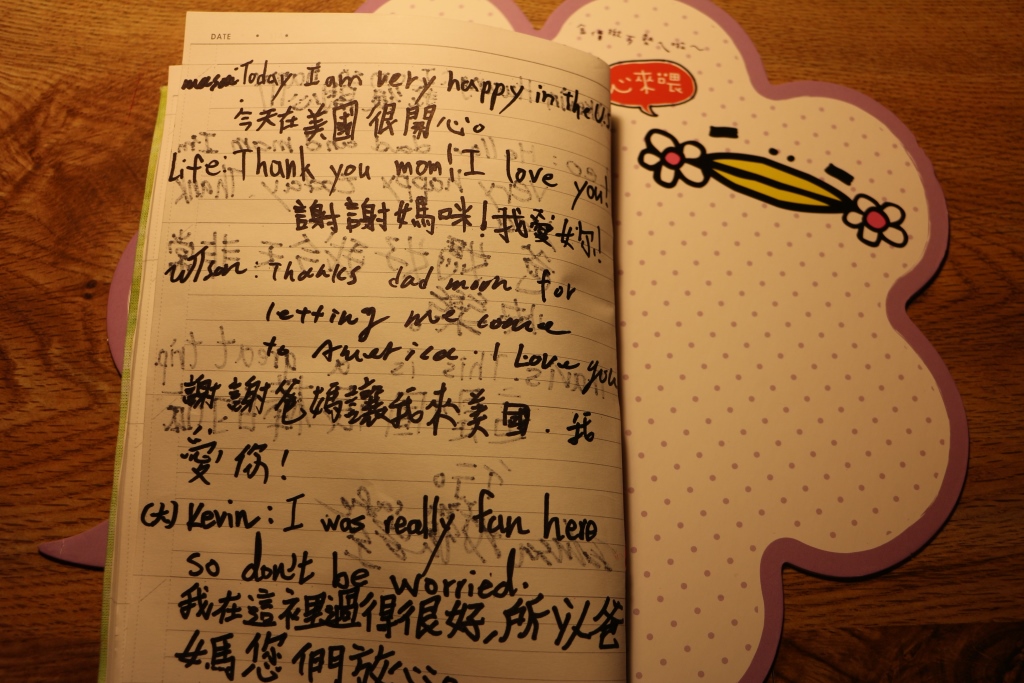 DATE
Today I am very happy in the U.S
今天在美國很開心。
Life: Thank you mom! I love you!
謝謝媽咪!我愛妳!
Wilson: Thanks dad mom for
letting me come
to America. I Love you
謝謝爸媽讓我來美國.我
愛你!
(大) Kevin: I was really fan here
so don't be worried.
我在這裡過得很好,所以爸
媽您們放心。
心來喂